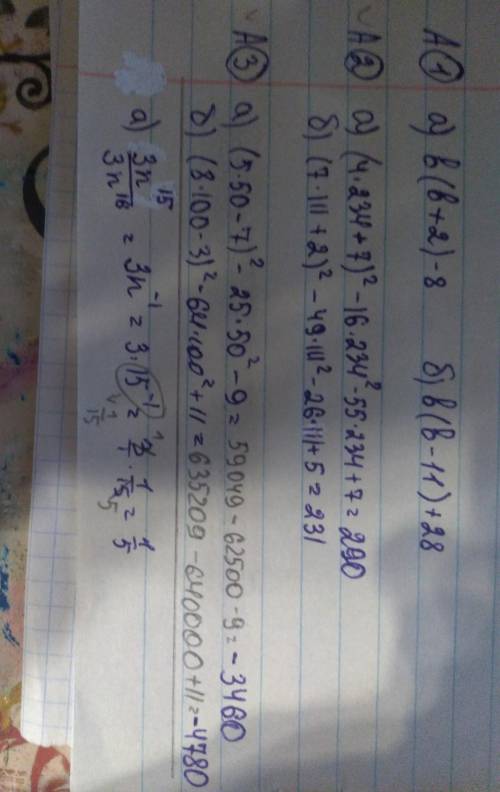 А① а) b(b+2)-8 б) b(b-11)+28
А② а) (4·234+7)²-16·234²-55·234+7=290
б) (7·111+2)²-49·111²-26·111+5=231
А③ а) (5·50-7)²-25·50²-9=59049-62500-9=-3460
б) (8·100-3)²-64·100²+11=635209-640000+11=-4780
а) 3n¹⁵/3n¹⁶ = 3n⁻¹ = 3·15⁻¹ = 3/1 · 1/15 = 1/5
1/15